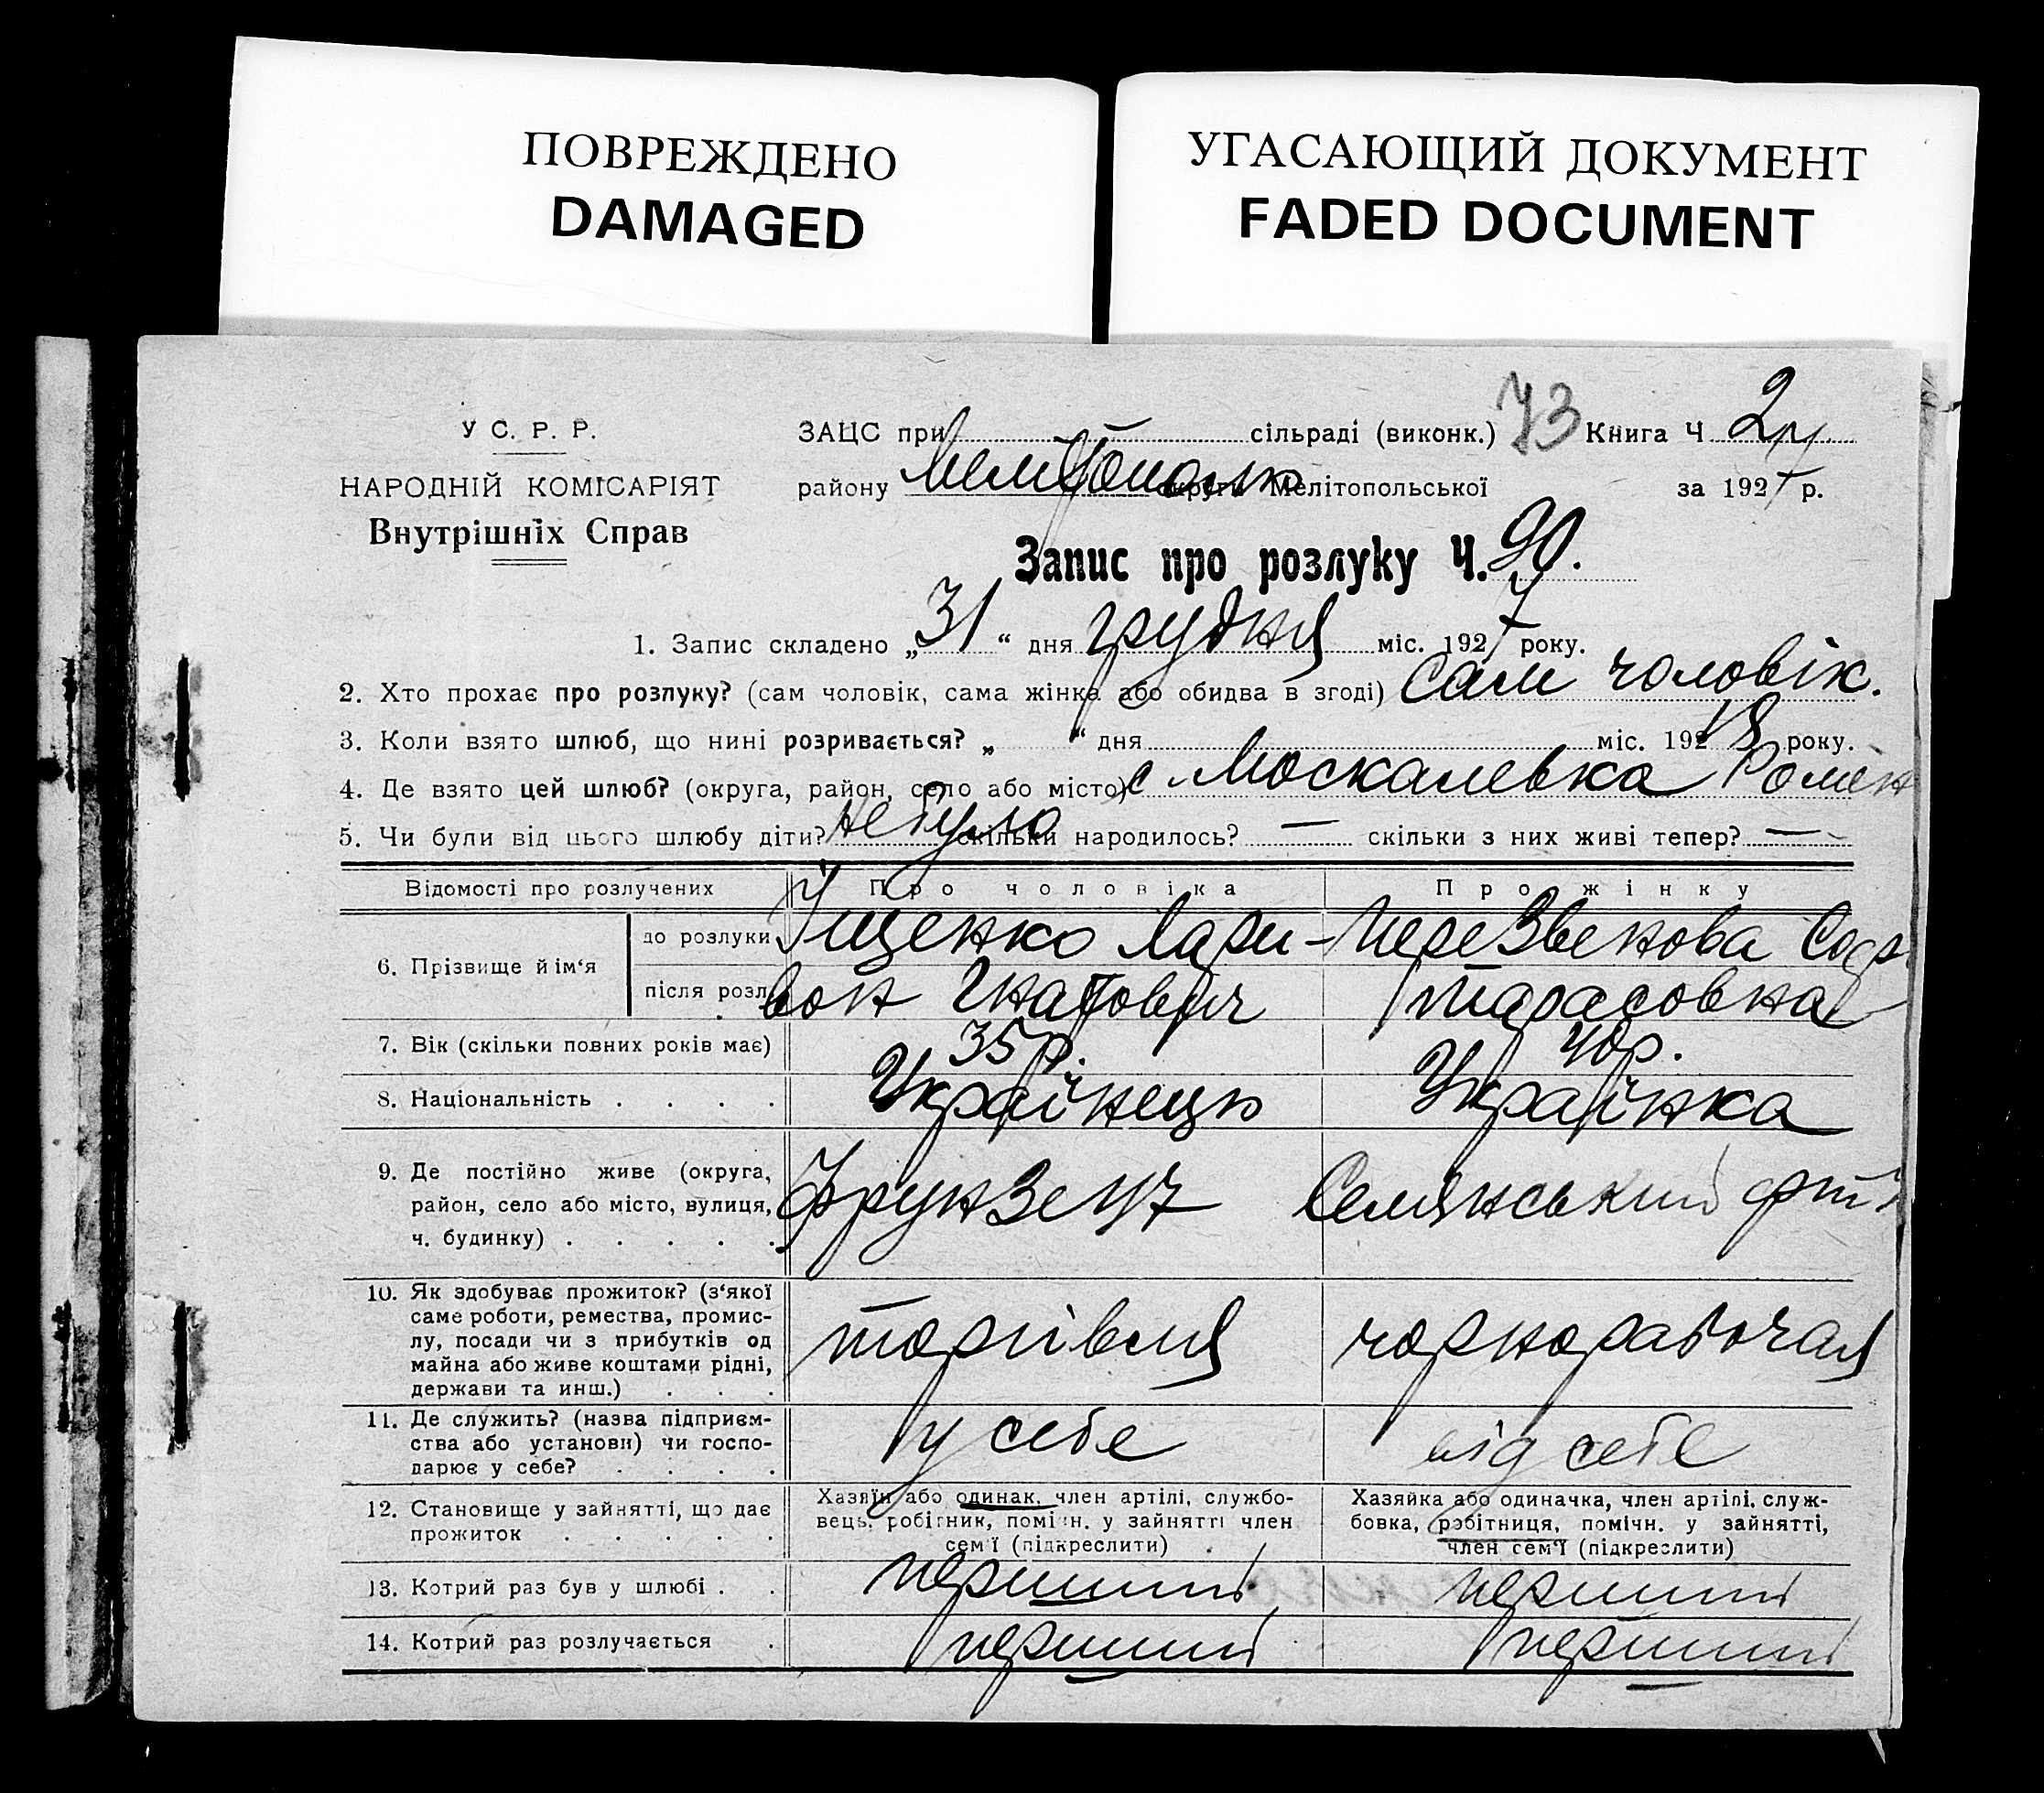 ПОВРЕЖДЕНО
DAMAGED
УГАСАЮЩИЙ ДОКУМЕНТ
FADED DOCUMENT
У С. Р. Р.
НАРОДНІЙ КОМІСАРІЯТ
Внутрішніх Справ
ЗАЦС при сільраді (виконк.) 73 Книга Ч 2
району округи Мелітопольської за 1927 р.
Запис про розлуку Ч. 90.
1. Запис складено „31“ дня грудня міс. 1927 року.
2. Хто прохає про розлуку? (сам чоловік, сама жінка або обидва в згоді) сам чоловік.
3. Коли взято шлюб, що нині розривається? „ “ дня міс. 192 18 року.
4. Де взято цей шлюб? (округа, район, село або місто) с Москалевка Ромен
5. Чи були від цього шлюбу діти? не було скільки народилось? — скільки з них живі тепер? —
Відомості про розлучених Про чоловіка Про жінку
6. Прізвище й ім‘я
до розлуки Іщенко Лари-
вон Гнатович
Перезвенова Соф.
Тарасовна
після розл.
7. Вік (скільки повних років має) 35 р. 40 р.
8. Національність . . . . Українець Українка
9. Де постійно живе (округа,
район, село або місто, вулиця,
ч. будинку) . . . . .
Фрунзе 117
10. Як здобуває прожиток? (з‘якої
саме роботи, ремества, промис-
лу, посади чи з прибутків од
майна або живе коштами рідні,
держави та инш.) . . .
торгівля чорнорабочая
11. Де служить? (назва підприєм-
ства або установи) чи госпо-
дарює у себе? . . . .
у себе від себе
12. Становище у зайнятті, що дає
прожиток . . . . .
Хазяїн або одинак, член артілі, службо-
вець, робітник, помічн. у зайнятті член
сем‘ї (підкреслити) .
Хазяйка або одиначка, член артілі, служ-
бовка, робітниця, помічн. у зайнятті,
член сем‘ї (підкреслити)
13. Котрий раз був у шлюбі . . перший перший
14. Котрий раз розлучається . перший перший